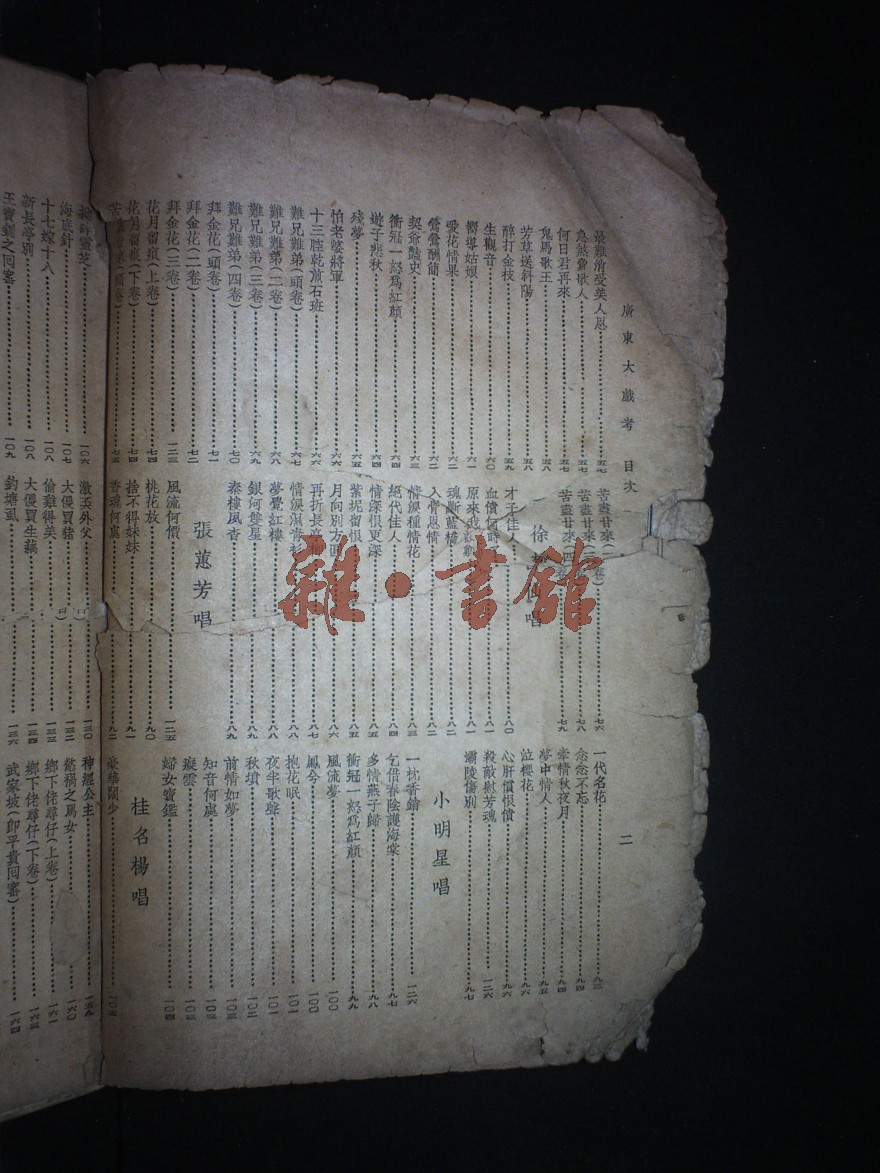 廣東大戲考 目次 二
最難消受美人恩 五七
急煞賣歌人 五七
何日君再來 五七
鬼馬歌王 五八
芳草送斜陽 五八
醉打金枝 五九
生觀音 六〇
嚮導姑娘 六一
愛花情果 六二
鶯鶯酬簡 六二
契爺豔史 六三
衝冠一怒爲紅顏 六四
遊子悲秋 六四
殘夢 六五
怕老婆將軍 六六
十三腔乾煎石班 六七
難兄難弟(頭卷) 六七
難兄難弟(二卷) 六八
難兄難弟(三卷) 六九
難兄難弟(四卷) 七〇
拜金花(頭卷) 七一
拜金花(二卷) 七二
拜金花(三卷) 一二三
花月留痕(上卷) 七四
花月留痕(下卷) 七四
苦盡甘來(頭卷) 七五
苦盡甘來(二卷) 七六
苦盡甘來(三卷) 七七
苦盡甘來(四卷) 七九
徐 唱
才子佳人 八〇
血債何時 八一
原來我 八一
魂斷藍橋 八二
入骨恩情 八二
情淚種情花 八三
絕代佳人 八四
情深恨更深 八五
紫坭留恨 八五
月向別方圓 八六
再折長亭柳 八七
情淚濕青衫 八八
夢覺紅樓 八八
銀河雙星 八九
秦樓鳳杳 八九
張蕙芳唱
風流何價 一二五
桃花放 九〇
捨不得妹妹 九一
香魂何處 九二
一代名花 九三
念念不忘 九四
牽情秋夜月 九四
夢中情人 九五
泣櫻花 九六
心肝憤恨債 九六
殺敵慰芳魂 一二六
灞陵傷別 九七
小明星唱
一枕香銷 一二六
乞借春陰護海棠 九七
多情燕子歸 九八
衝冠一怒爲紅顏 九九
風流夢 一〇〇
鳳兮 一〇〇
抱花眠 一〇一
夜半歌聲 一〇一
秋墳 一〇二
前情如夢 一〇三
知音何處 一〇三
癡雲 一〇三
婦女寶鑑 一〇四
桂名楊唱
豪華闊少 一〇五
靈芝 一〇六
海底針 一〇七
十七嫁十八 一〇八
新長亭別 一〇八
王寶釧之回窰 一〇九
激丕外父 一三〇
大傻買猪 一三二
偷雞得美 一三三
大傻買生藕 一三四
釣塘虱 一三六
神經公主 一五九
慾禍之馬女 一六〇
鄉下佬尋仔(上卷) 一六一
鄉下佬尋仔(下卷) 一六三
武家坡(即平貴回窰) 一六四
雜·書館